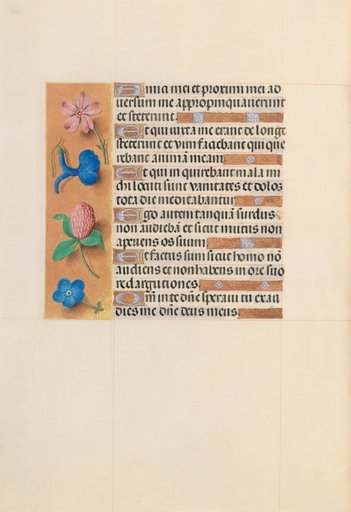 Amici mei et proximi mei ad
versum me appropinquaverunt
et steterunt.
Et qui iuxta me erant de longe
steterunt et vim faciebant qui que
rebant animā meam
Et qui inquirebant mala mi
chi locuti sunt vanitates et dolos
tota die meditabantur
Ego autem tanquā surdus
non audiebā et sicut mutus non
aperiens os suum
Et factus sum sicut homo nō
audiens et non habens in ore suo
redargutiones.
Qm̄ in te dn̄e speravi tu exau
dies me dn̄e deus meus.